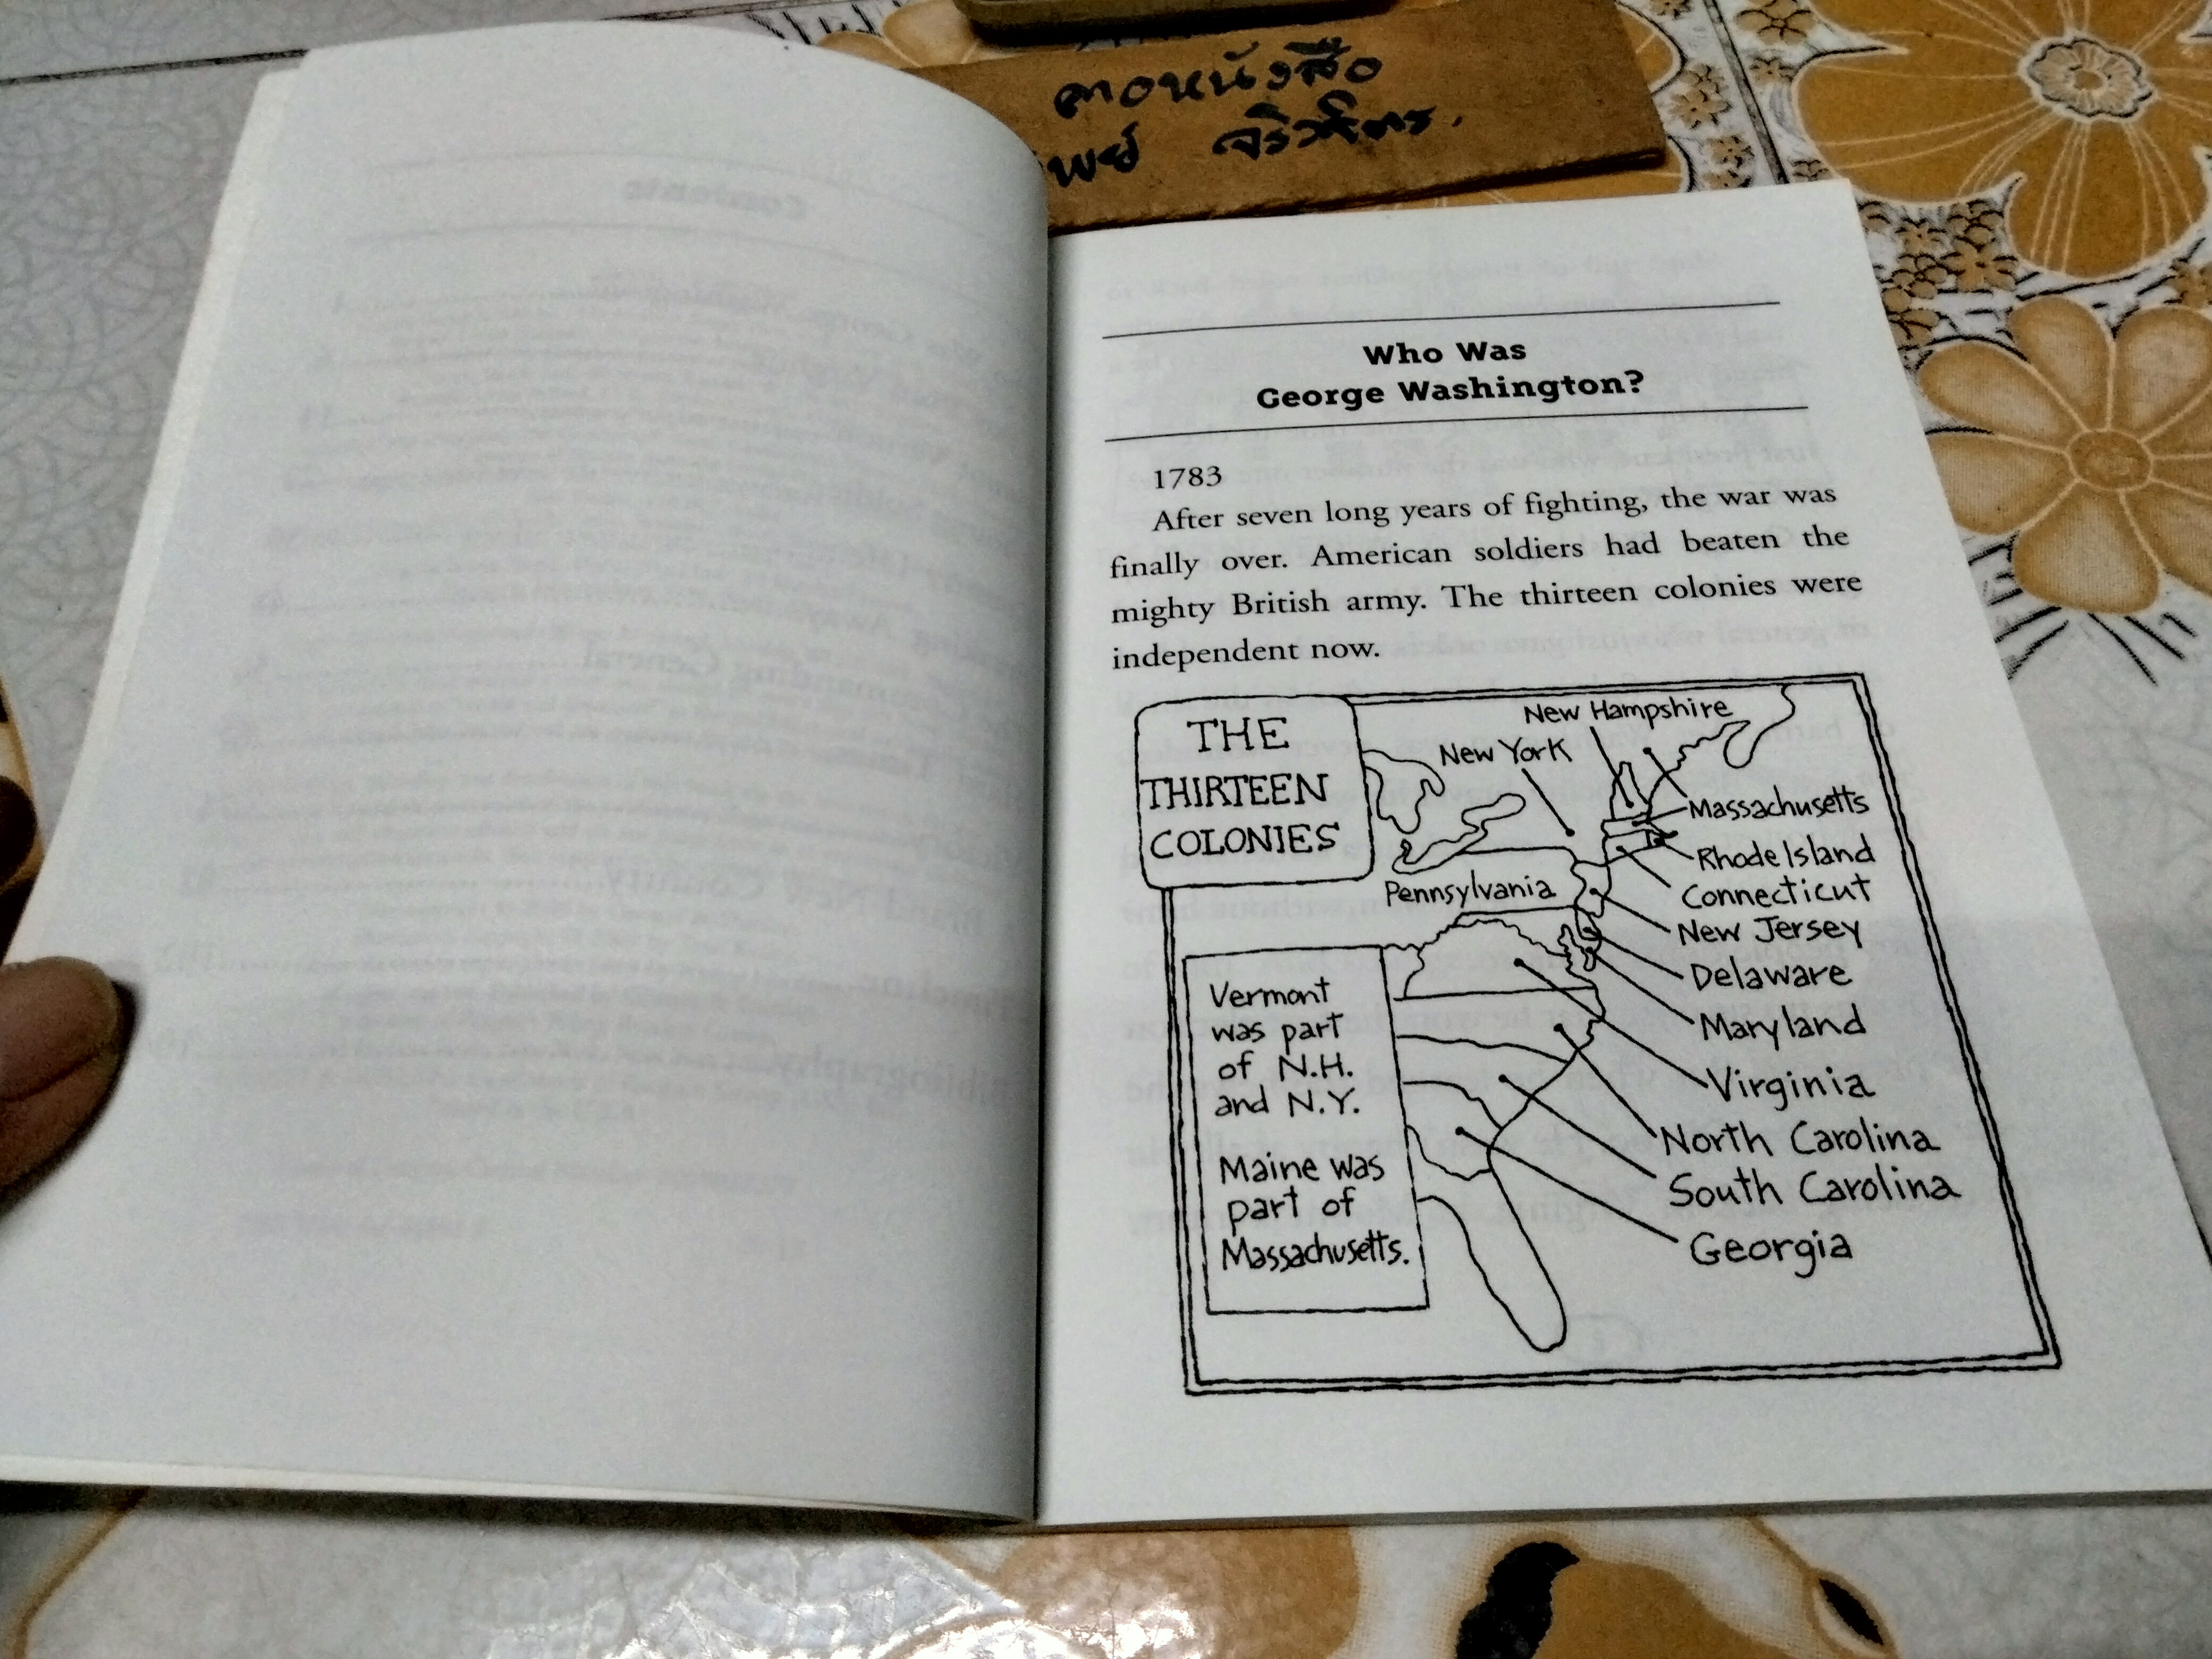 ลาดหนังสือ
Who Was
George Washington?
1783
After seven long years of fighting, the war was
finally over. American soldiers had beaten the
mighty British army. The thirteen colonies were
independent now.
THE
THIRTEEN
COLONIES
New Hampshire
New York
Massachusetts
Rhode Island
Connecticut
Pennsylvania
New Jersey
Delaware
Maryland
Virginia
North Carolina
South Carolina
Georgia
Vermont
was part
of N.H.
and N.Y.
Maine was
part of
Massachusetts.